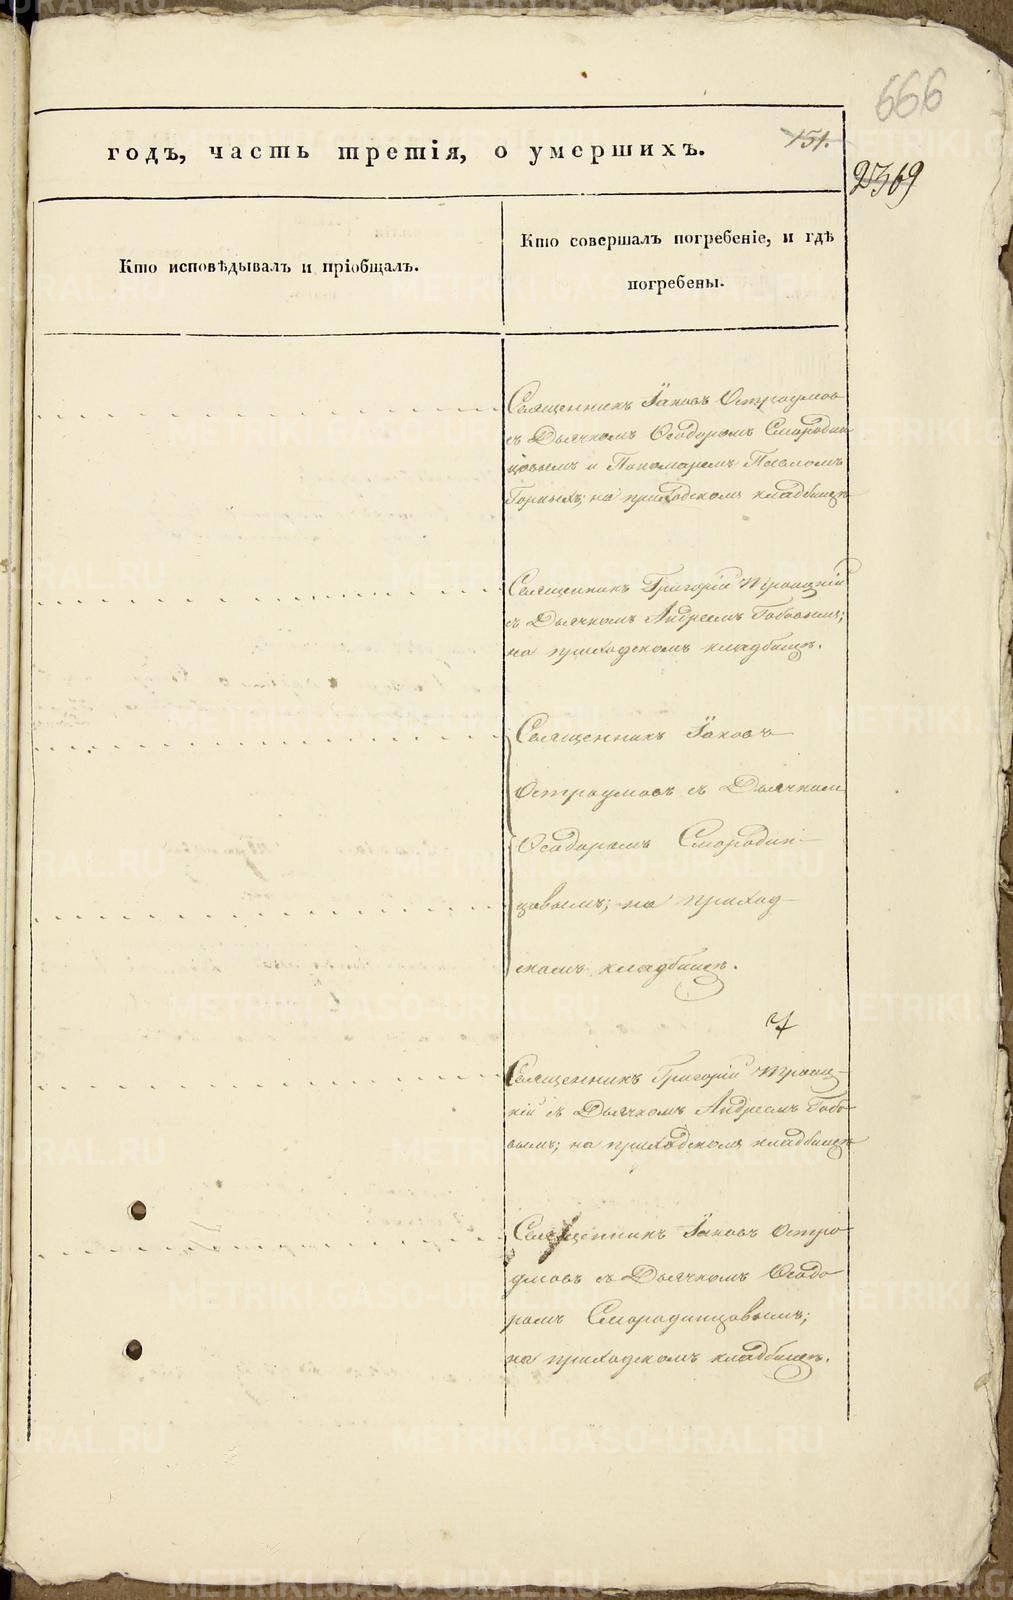 666
годъ, часть третія, о умершихъ.
151.
2369
Кто исповѣдывалъ и пріобщалъ.
Кто совершалъ погребеніе, и гдѣ
погребены.
Священникъ Іаковъ Остроумов
съ Дьячкомъ Ѳеодоромъ Смородин
цовымъ и Пономаремъ Павломъ
Горныхъ; на приходскомъ кладбищѣ
Священникъ Григорій Троицкій
съ Дьячкомъ Андреемъ Бабовымъ;
на приходскомъ кладбищѣ.
Священникъ Іаковъ
Остроумовъ съ Дьячком
Ѳеодоромъ Смородин-
цовымъ; на приход-
скомъ кладбищѣ.
Священникъ Григорій Троиц-
кій съ Дьячкомъ Андреемъ Бабо
вымъ; на приходскомъ кладбищѣ
Священникъ Іаковъ Остро
умовъ съ Дьячкомъ Ѳеодо
ромъ Смородинцовымъ;
на приходскомъ кладбищѣ.
METRIKI.GASO-URAL.RU